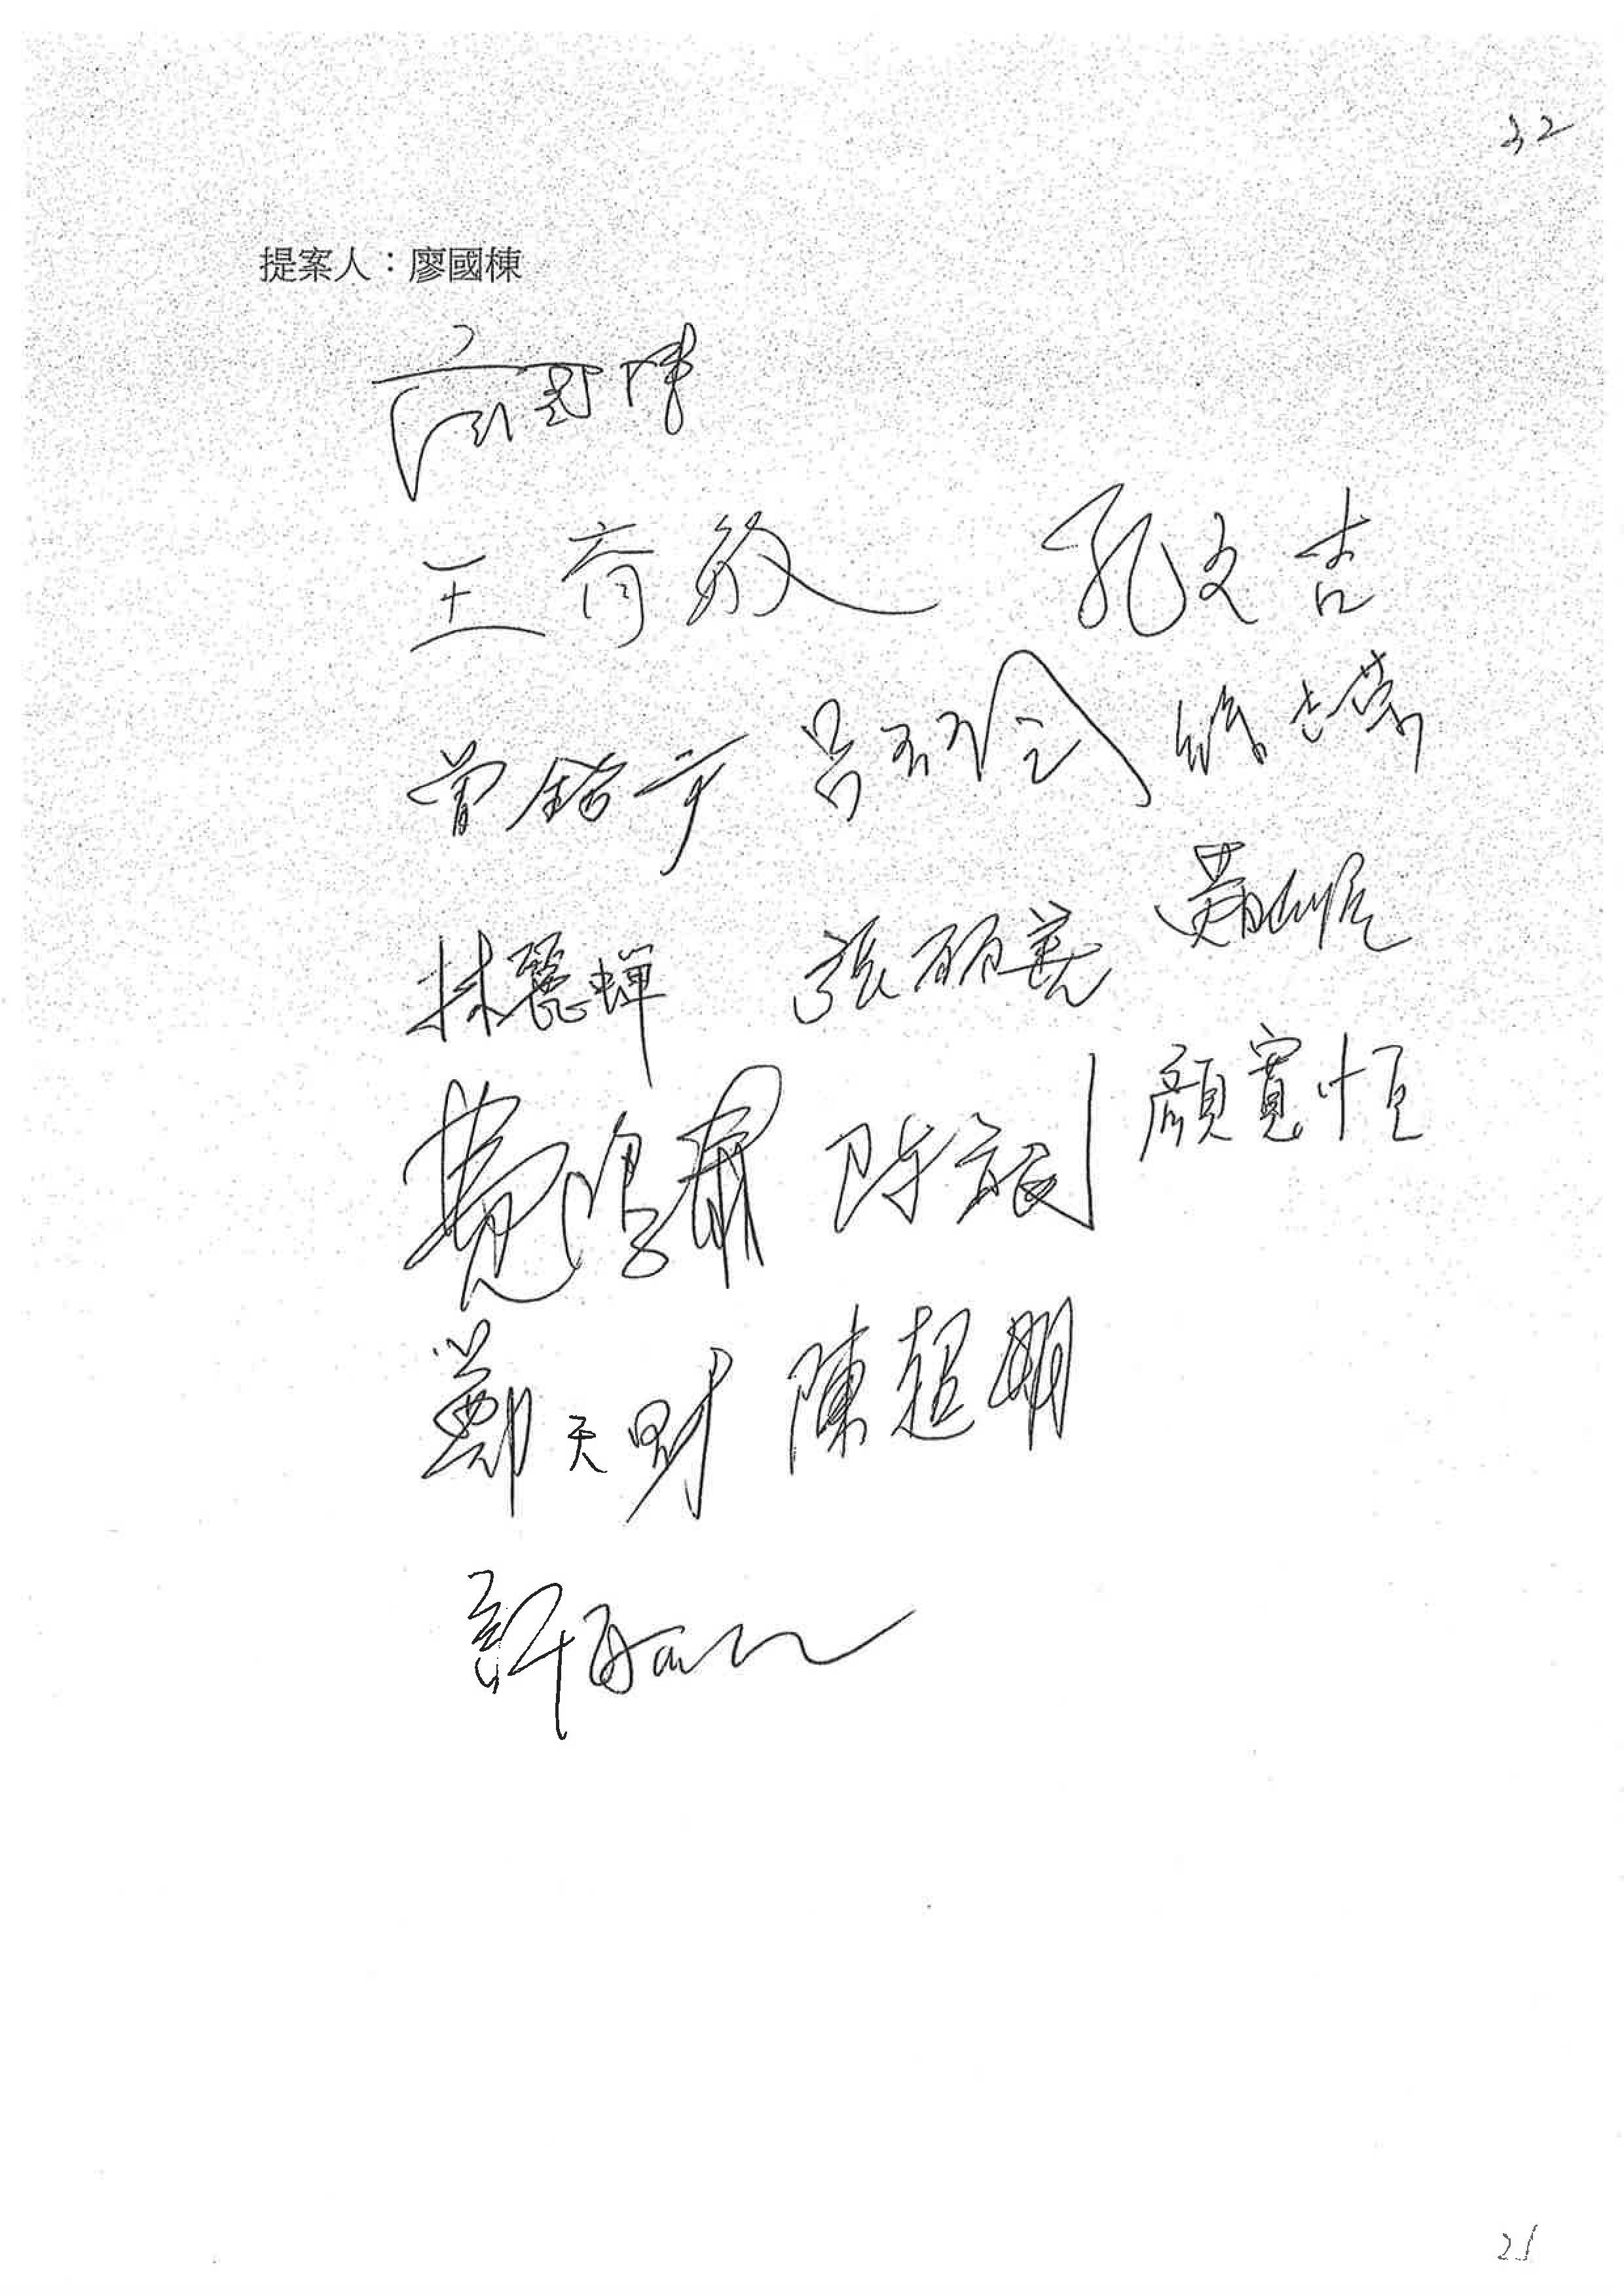 32
提案人：廖國棟
廖國棟
王育敏 孔文吉
曾銘宗 呂玉玲 徐志榮
林麗蟬 張麗善 黃昭順
費鴻泰 陳宜民 顏寬恒
鄭天財 陳超明
許
21